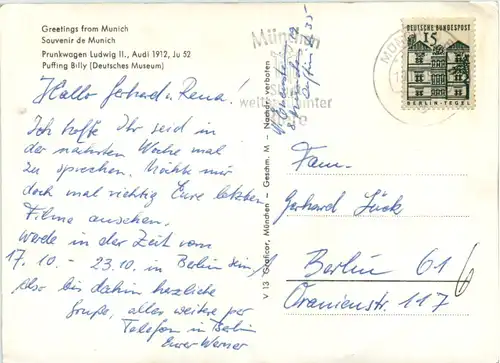 Greetings from Munich
Souvenir de Munich
Prunkwagen Ludwig II., Audi 1912, Ju 52
Puffing Billy (Deutsches Museum)
Hallo Gerhard u. Rena!
Ich hoffe Ihr seid in
der nächsten Woche mal
zu sprechen. Möchte mir
doch mal richtig Eure letzten
Filme ansehen.
Werde in der Zeit vom
17.10. - 23.10. in Berlin sein,
Also bis dahin herzliche
Grüße, alles weitere per
Telefon in Berlin
Euer Werner
V 13 Graficor, München - Geschm. M - Nachdr. verboten
München
DEUTSCHE BUNDESPOST
15
BERLIN-TEGEL
Fam.
Gerhard Lück
Berlin 61
Oranienstr. 117
6